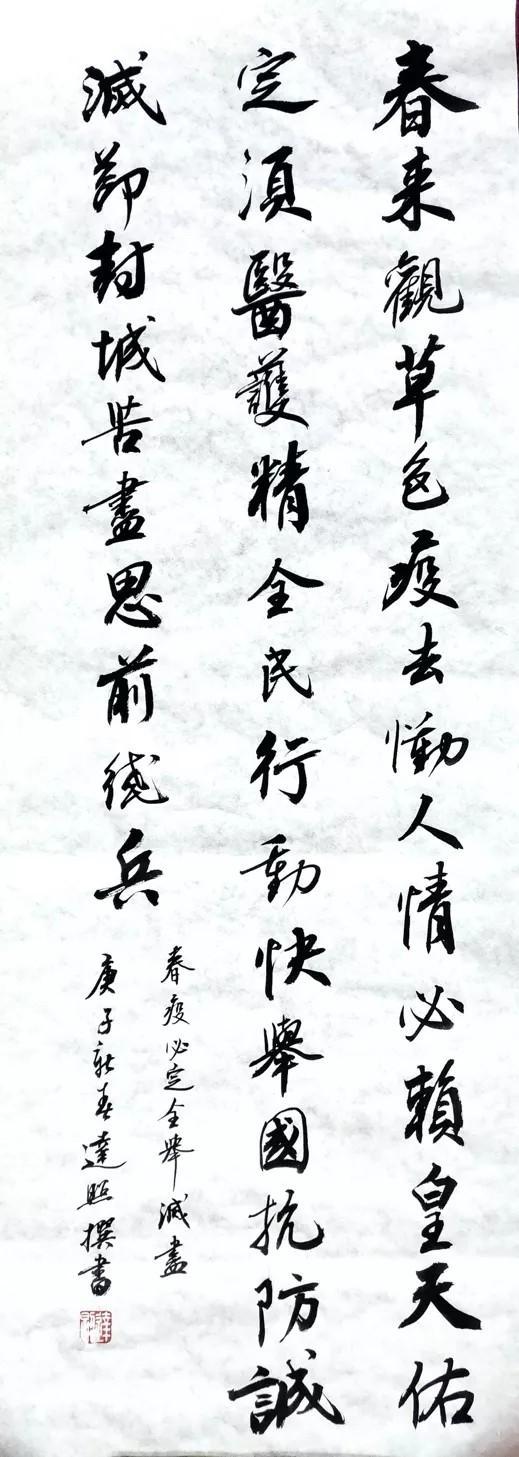 春来觀草色疫去慟人情必賴皇天佑
定須醫護精全民行動快舉國抗防誠
滅節封城苦盡思前綫兵
春疫必定全舉滅盡
庚子新春達照撰書